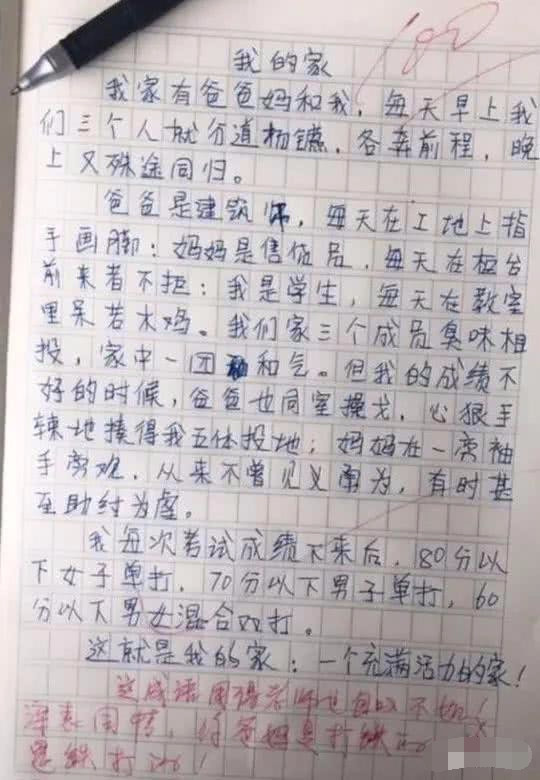 100
我的家
我家有爸爸妈和我，每天早上我
们三个人就分道杨镳，各奔前程，晚
上又殊途同归。
爸爸是建筑师，每天在工地上指
手画脚；妈妈是售货员，每天在柜台
前来者不拒；我是学生，每天在教室
里呆若木鸡。我们家三个成员臭味相
投，家中一团和气。但我的成绩不
好的时候，爸爸也同室操戈，心狠手
辣地揍得我五体投地；妈妈在一旁袖
手旁观，从来不曾见义勇为，有时甚
至助纣为虐。
我每次考试成绩下来后，80分以
下女子单打，70分以下男子单打，60
分以下男女混合双打。
这就是我的家：一个充满活力的家！
这成语用得老师也自叹不如！
你爸妈是打铁
打